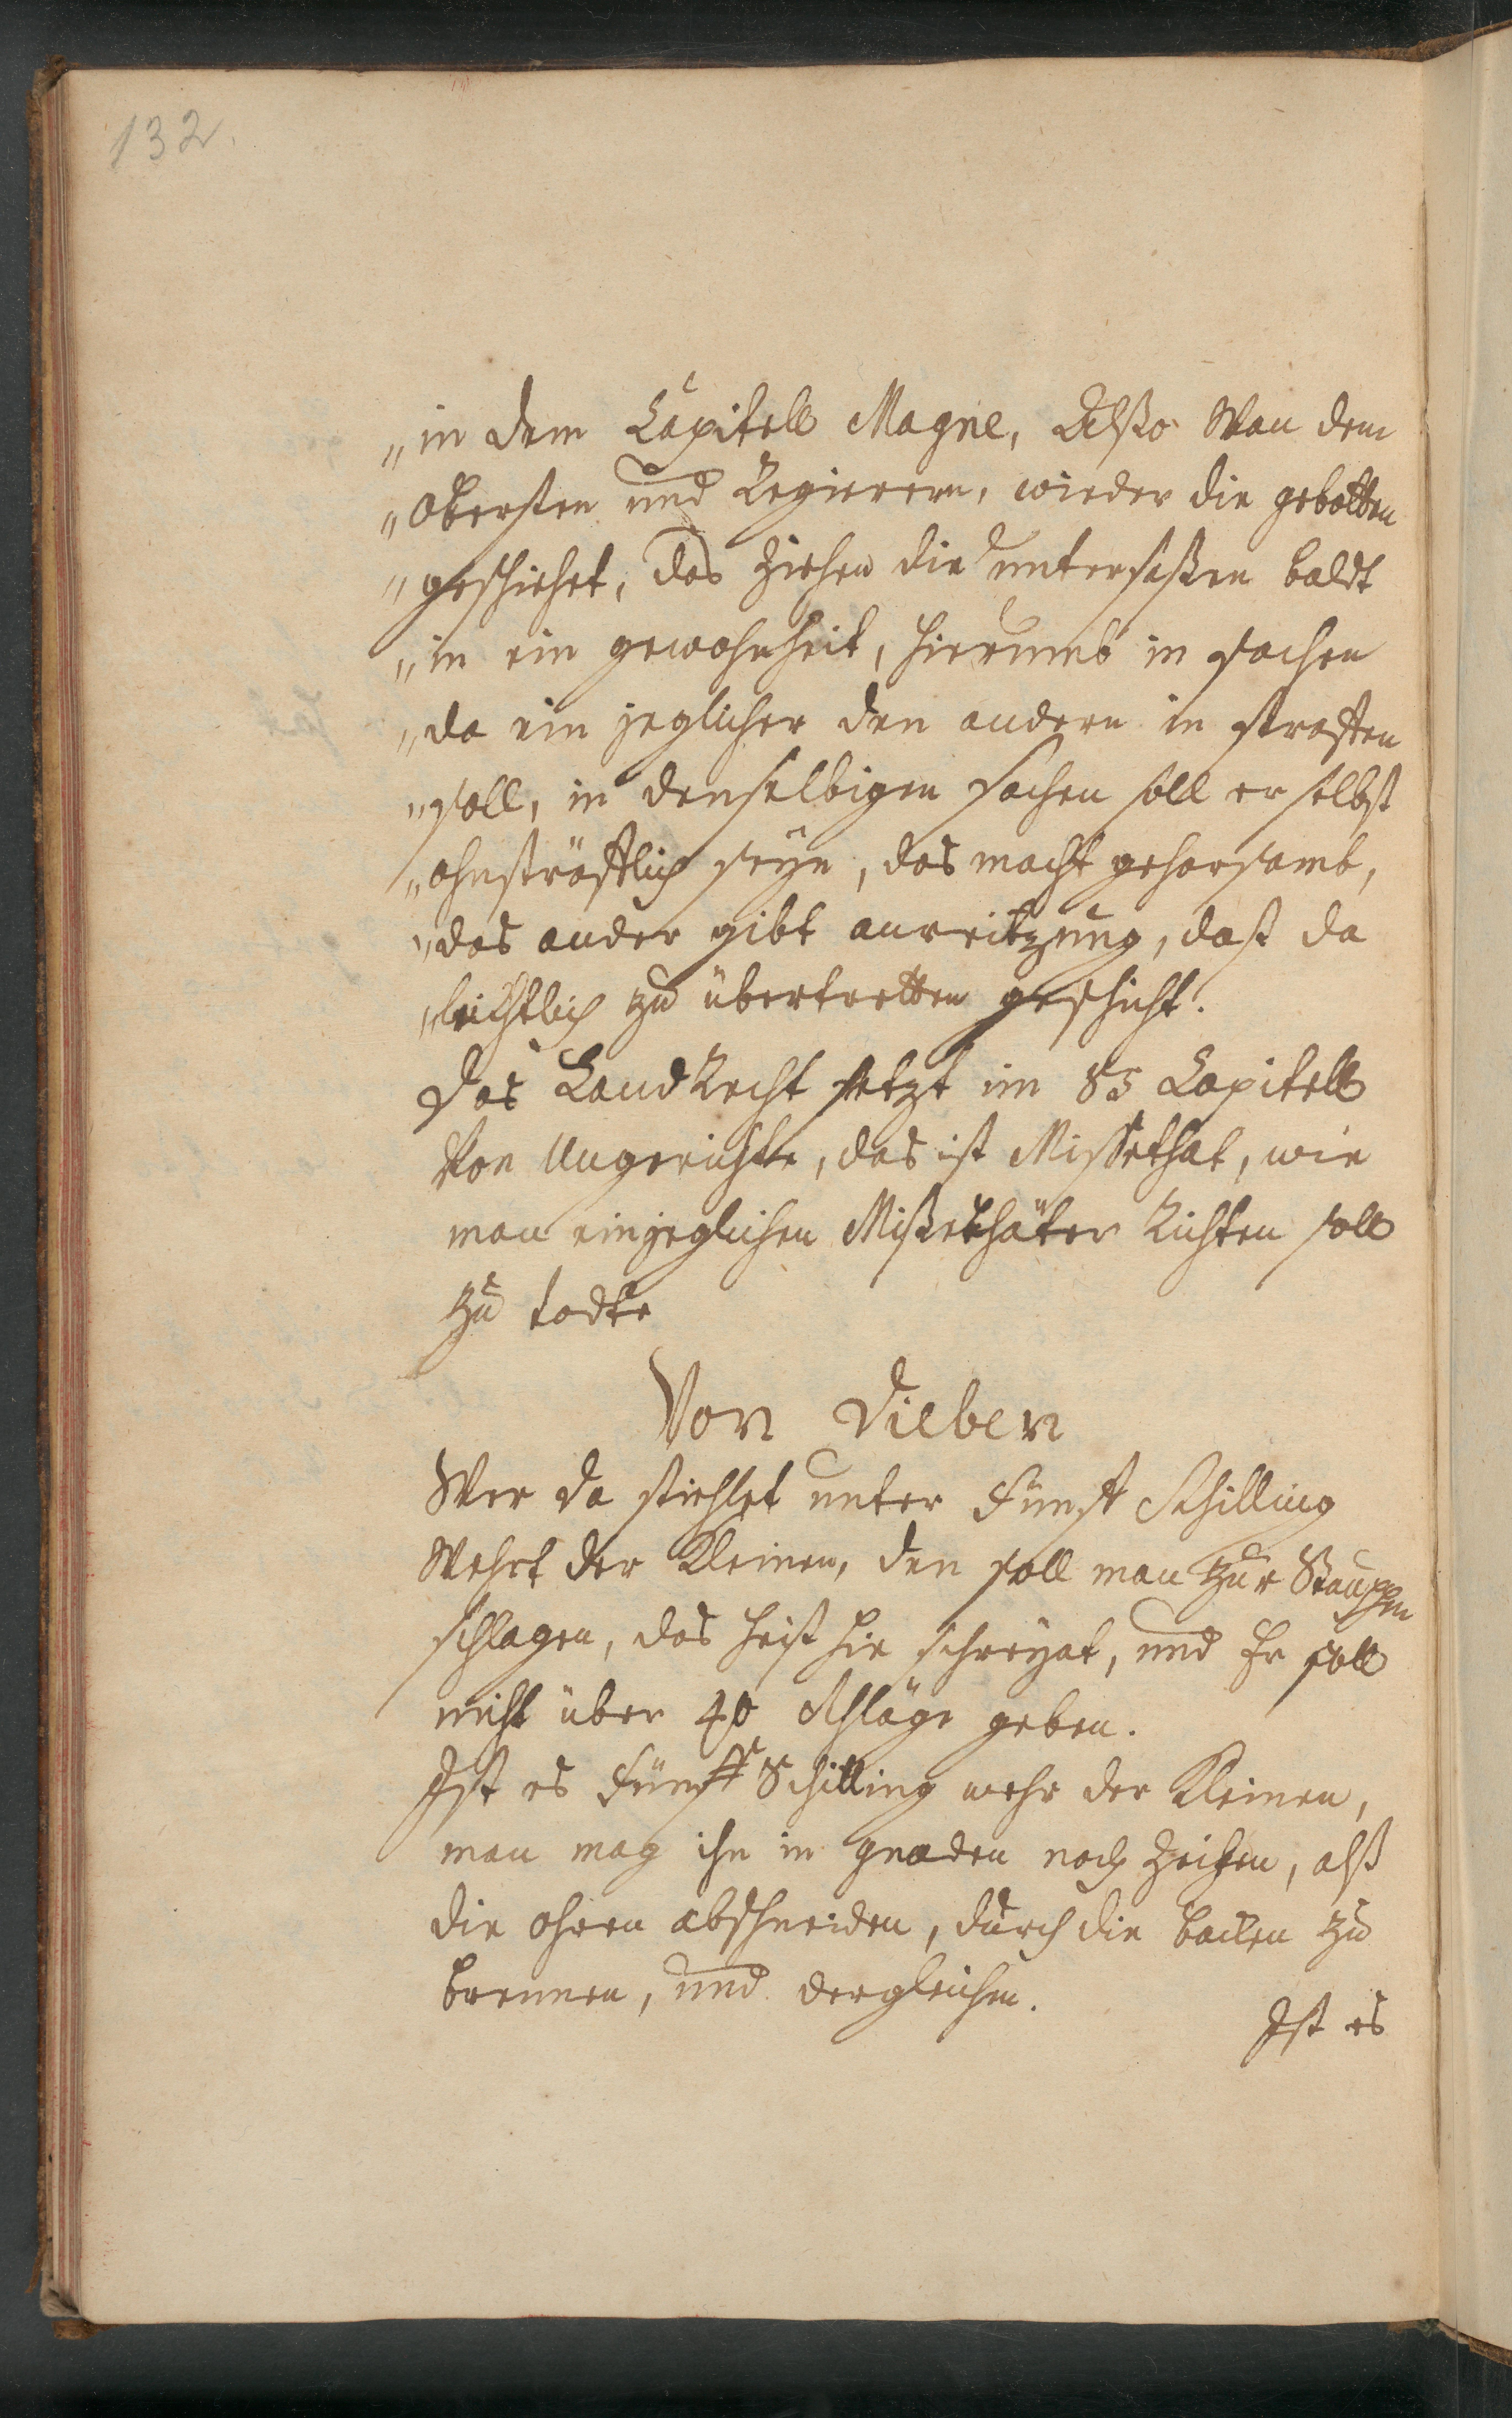 132.
„in dem Capitell Magne, Alßo Wan dem
„Obersten und Regierern, wieder die gebotten
„geschiehet, das ziehen die untersaßen baldt
„in ein gewohnheit, hierumb in sachen
„da ein jeglicher den andern in straffen
„soll, in denselbigen sachen soll er selbst
„ohnsträfflich seyn, das macht gehorsamb,
„das ander gibt anreitzung, dasß da
„leichtlich zu übertretten geschicht.
Das LandRecht setzt im 85 Capitell
Von Ungerichte, das ist Missethat, wie
man einjeglichen Mißethäter Richten soll
zu todte
Von Dieben
Wer da stiehlet unter Fünff Schilling
Wehrt der Kleinen, den soll man zur Stauppen
schlagen, das heist hie schreyat, und Er soll
nicht über 40 Schläge geben.
Ist es Fünff Schilling mehr der Kleinen,
man mag ihn in gnaden noch zeichen, alß
die ohren abschneiden, durch die backen zu
brennen, und dergleichen.
Ist es